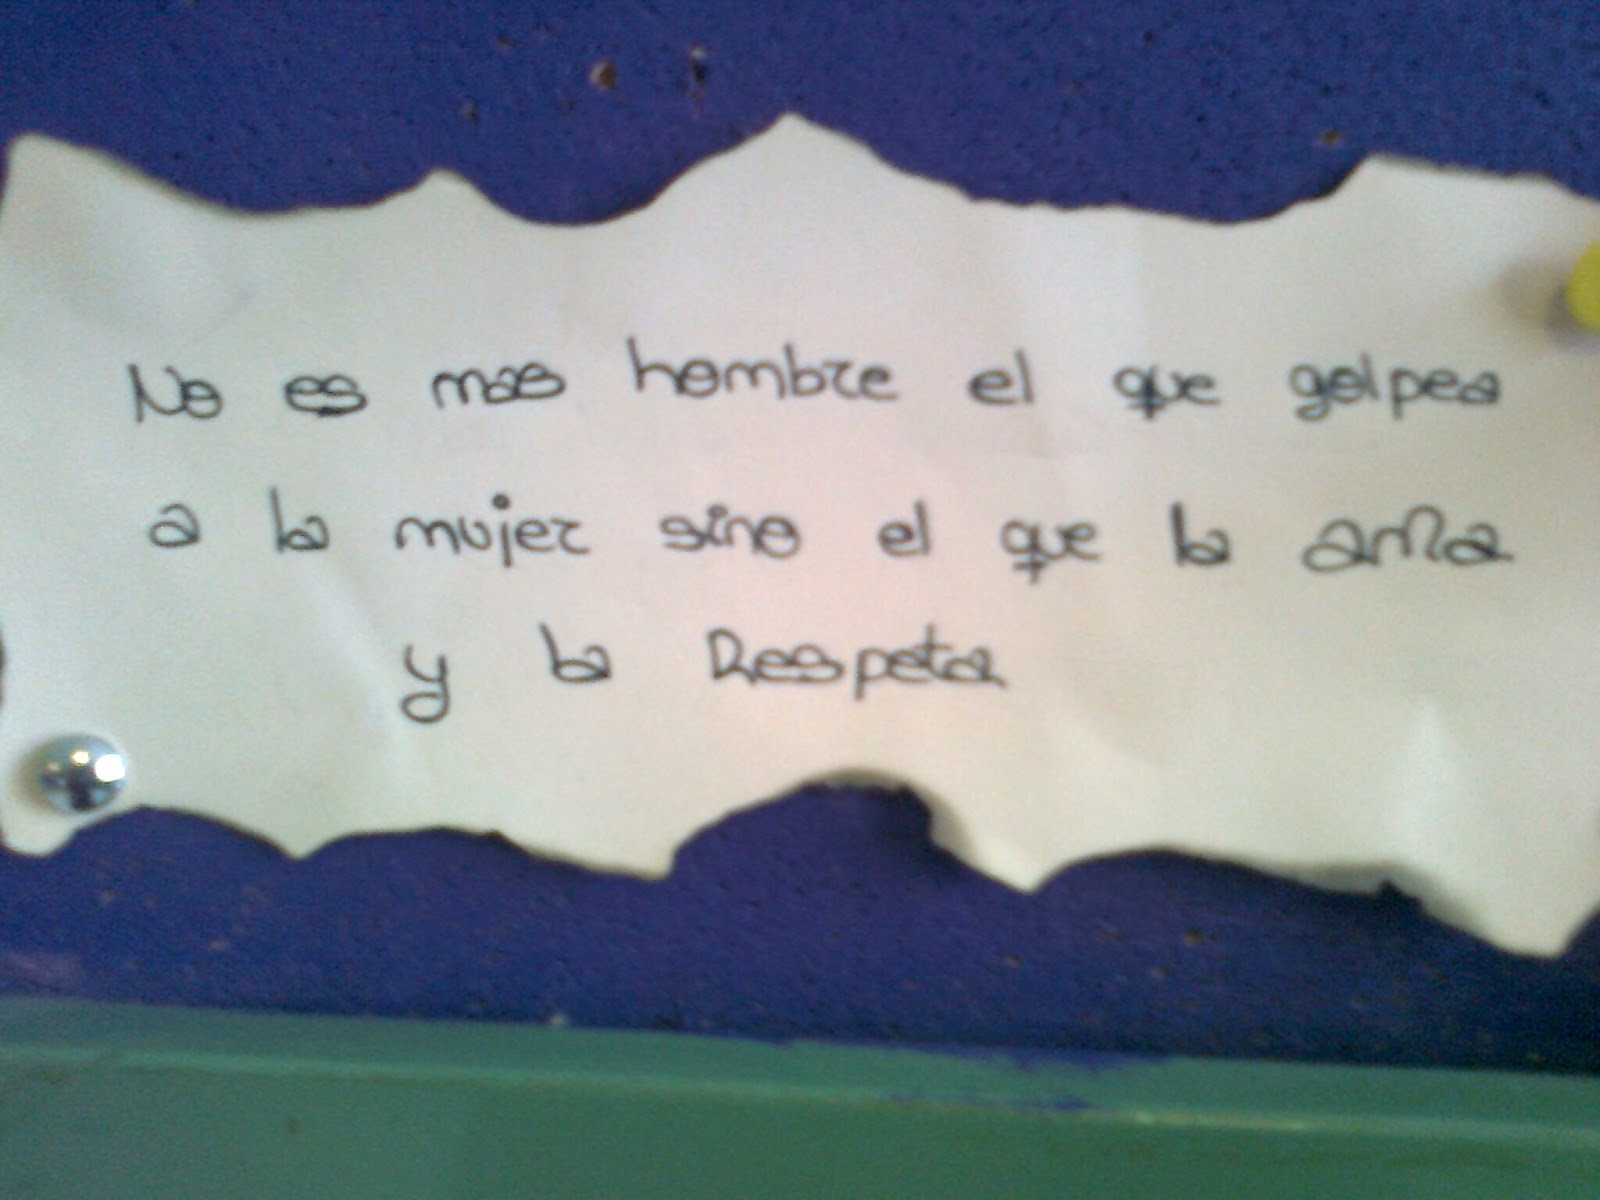 No es mas hombre el que golpea
a la mujer sino el que la ama
y la Respeta